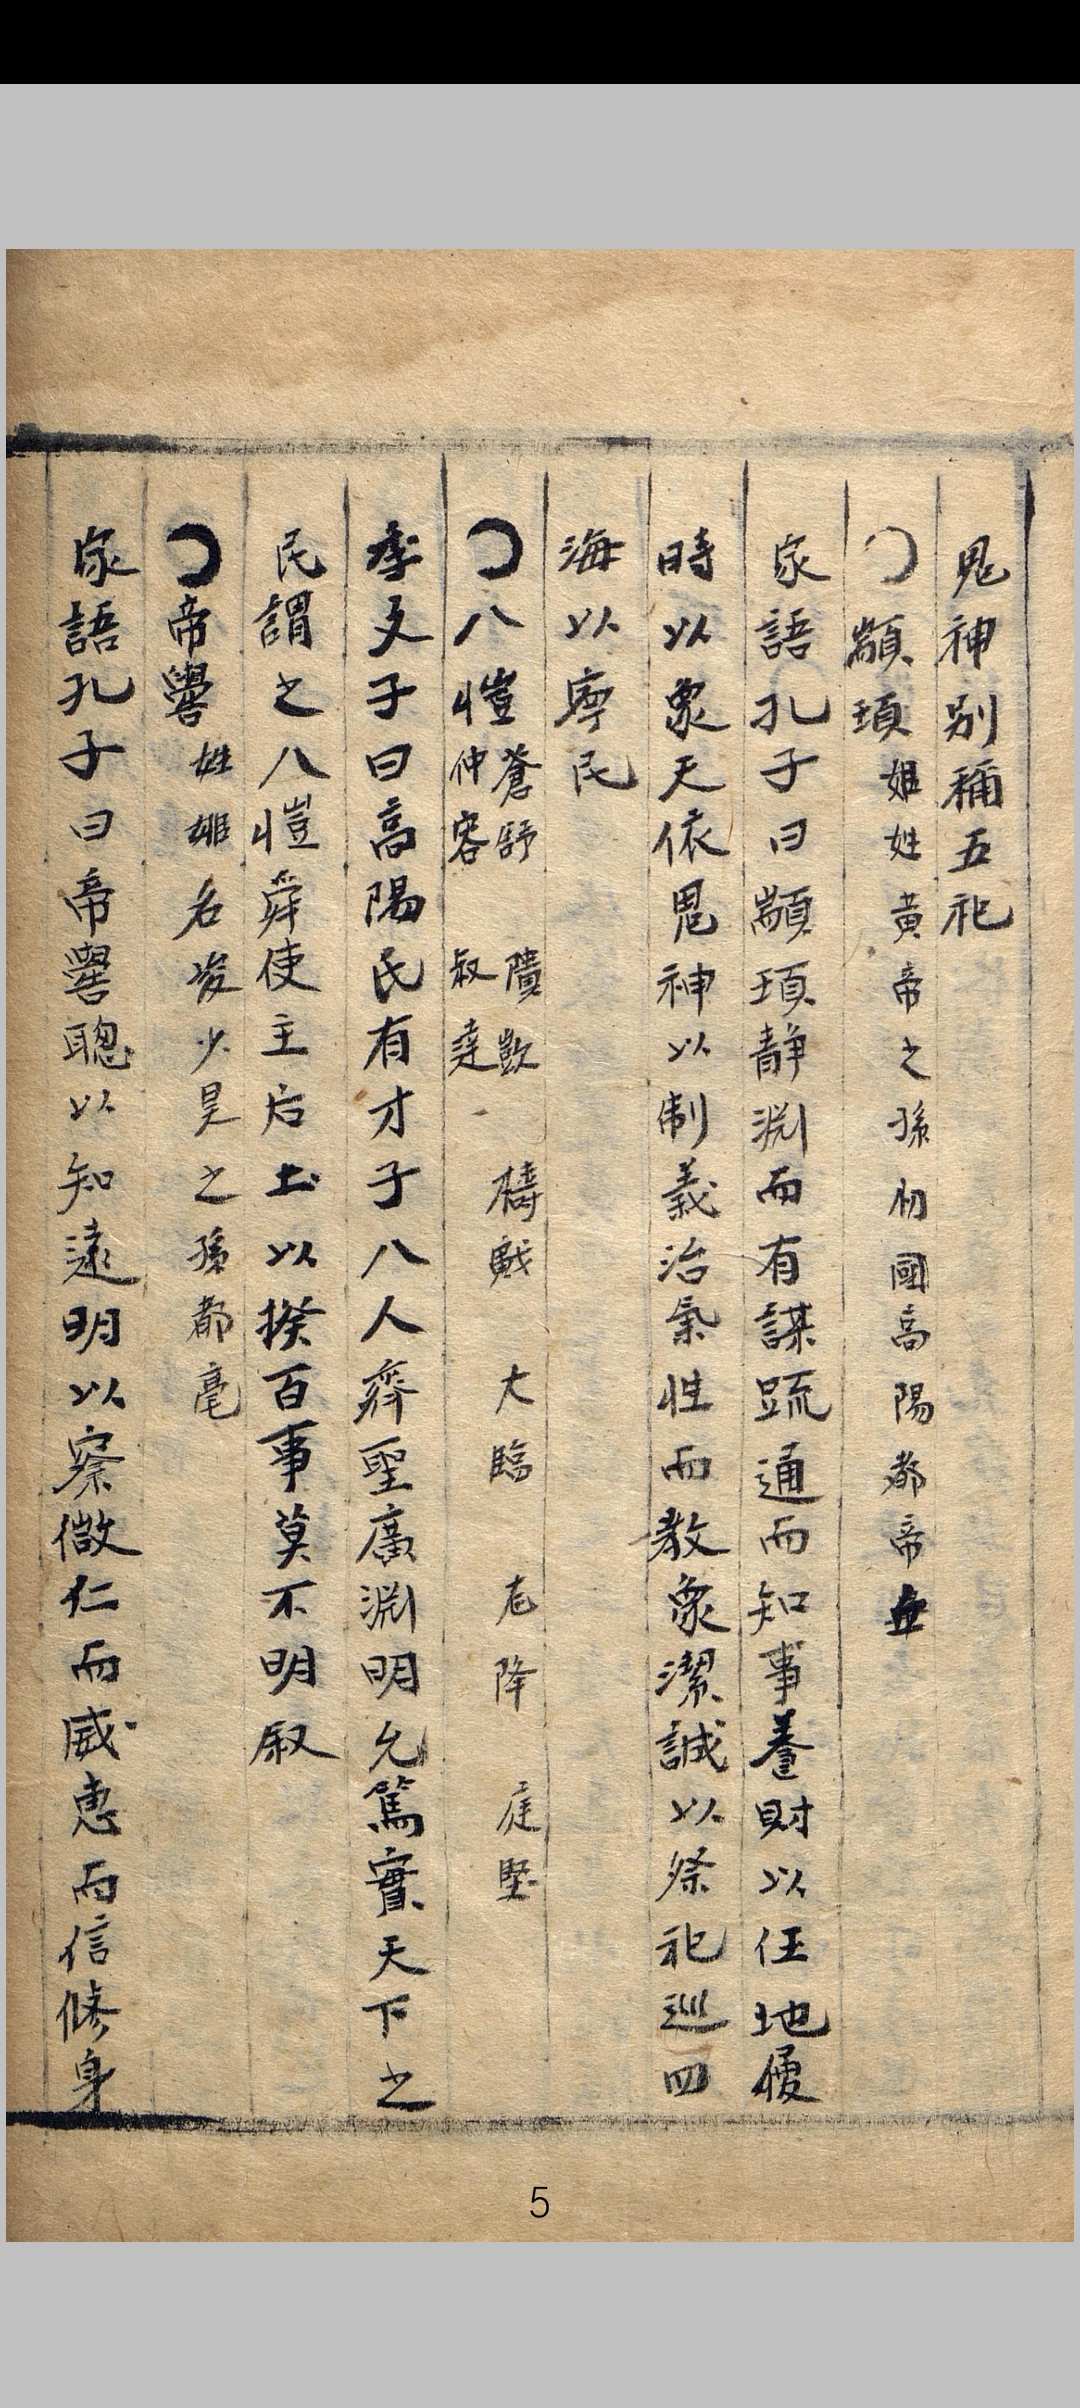 鬼神別稱五祀
顓頊 姬姓黃帝之孫初國高陽都帝丘
家語孔子曰顓頊静渊而有謀䟽通而知事養財以任地優
時以象天依鬼神以制義治氣性而教衆潔誠以祭祀巡四
海以寕民
八愷 蒼舒 隤敳 檮戭 大臨 尨降 庭堅
仲容 叔達
季文子曰高陽氏有才子八人齊聖廣渊明允篤實天下之
民謂之八愷舜使主后土以揆百事莫不明叙
帝嚳 姓姬名夋少昊之孫都亳
家語孔子曰帝嚳聰以知遠明以察微仁而威惠而信修身
5